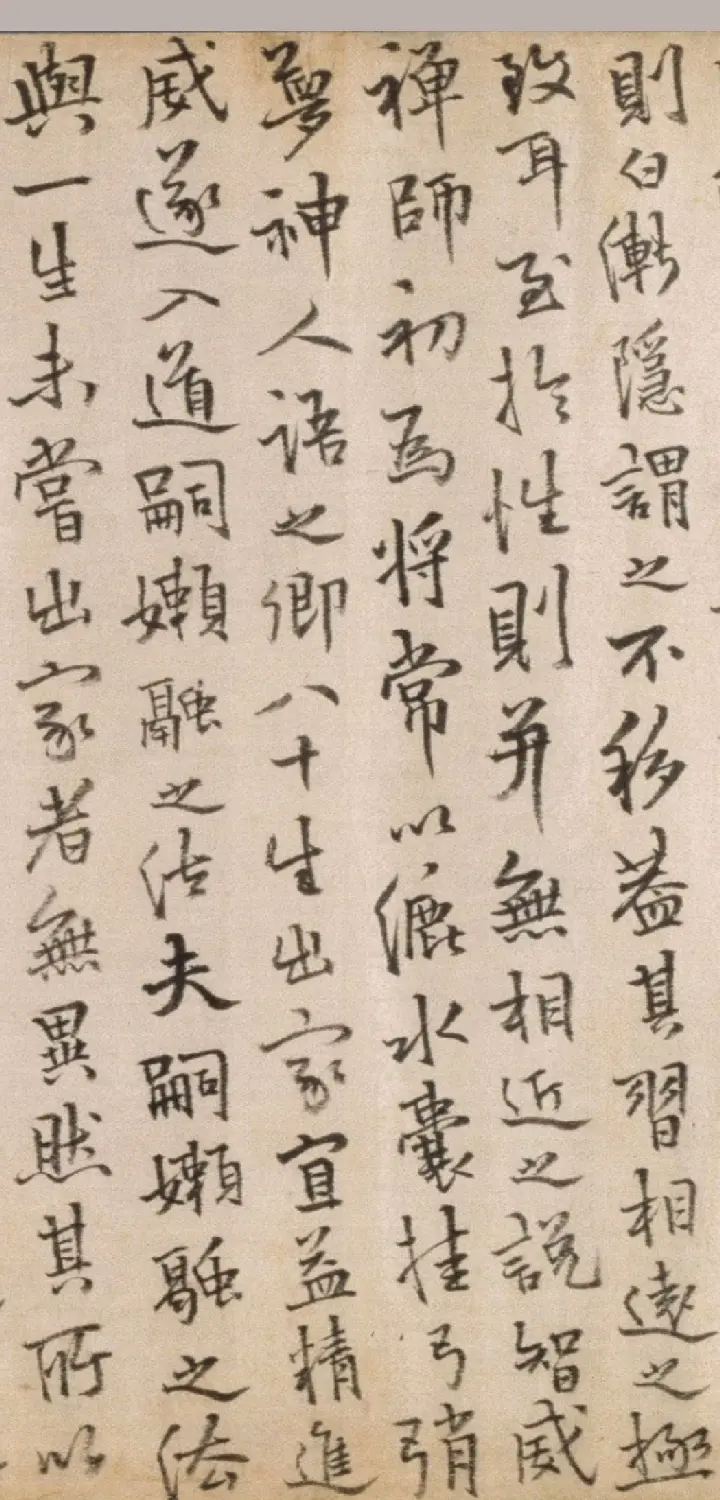 則曰漸隱謂之不移蓋其習相遠之極
致耳至於性則并無相近之說智威
禪師初為將常以漉水囊挂弓弰
夢神人語之卿八十生出家宜益精進
威遂入道嗣嬾融之法夫嗣嬾融之法
與一生未嘗出家者無異然其所以